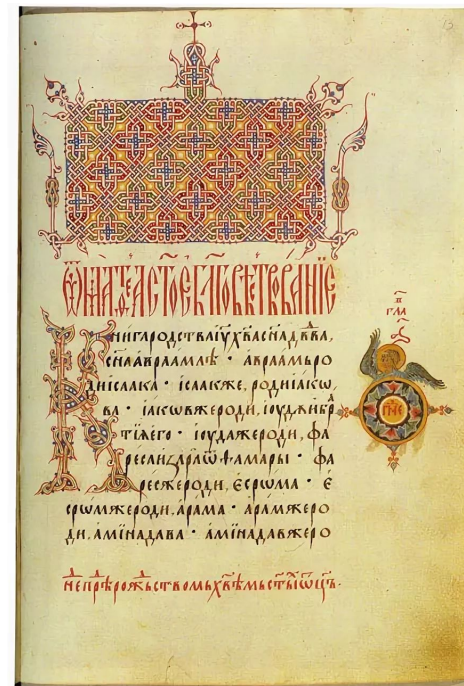 ѿ маѳеа ст҃ое бл҃говѣствованїе
Книга родства іу҃ х҃ва сн҃а дв҃ва,
сн҃а авраамлѣ · авраамъ ро
ди ісаака · ісаак же, роди іакѡ,
ва · іакѡвъ же роди, іоудѫ и бра
тїѧ его · іоуда же роди, фа
реса и зара ѿ ѳамары · фа
рес же роди, есрѡма · е
срѡмъ же роди, арама · арам же ро
ди, амїнадава · амїнадавъ же ро
гла
нел҃ прѣ рождьствомь хв҃ѣмь ст҃ыⷯ ѡц҃ъ ·